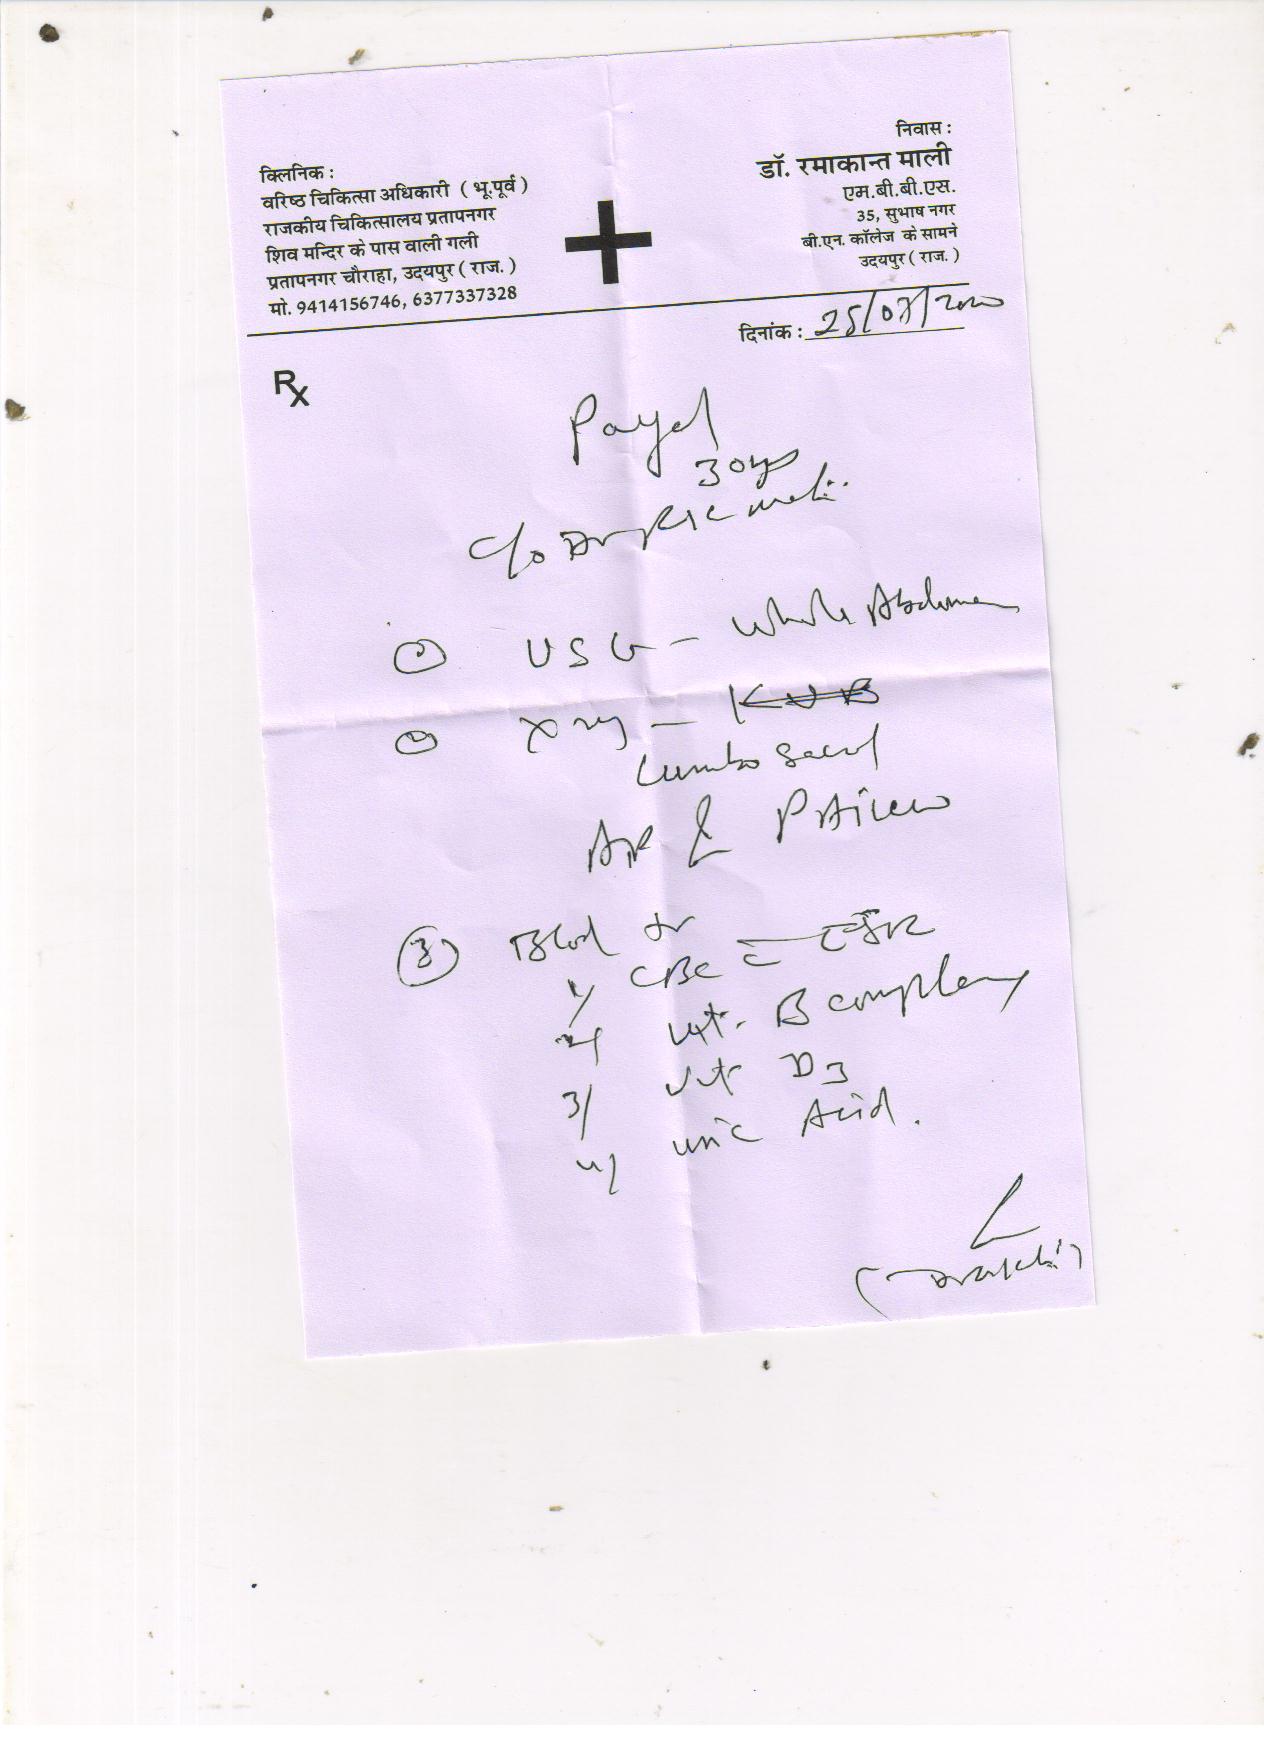 क्लिनिक :
वरिष्ठ चिकित्सा अधिकारी ( भू.पूर्व )
राजकीय चिकित्सालय प्रतापनगर
शिव मन्दिर के पास वाली गली
प्रतापनगर चौराहा, उदयपुर ( राज. )
मो. 9414156746, 6377337328
निवास :
डॉ. रमाकान्त माली
एम.बी.बी.एस.
35, सुभाष नगर
बी.एन. कॉलेज के सामने
उदयपुर ( राज. )
दिनांक :
Rx
Payal
30ys
C/o Dr
① USG - Whole Abdomen
② Xray - KUB
Lumbo
AP &
③ Blood for
1/ CBC ESR
2/ Vit. B complex
3/ Vit D3
4/ Uric Acid.